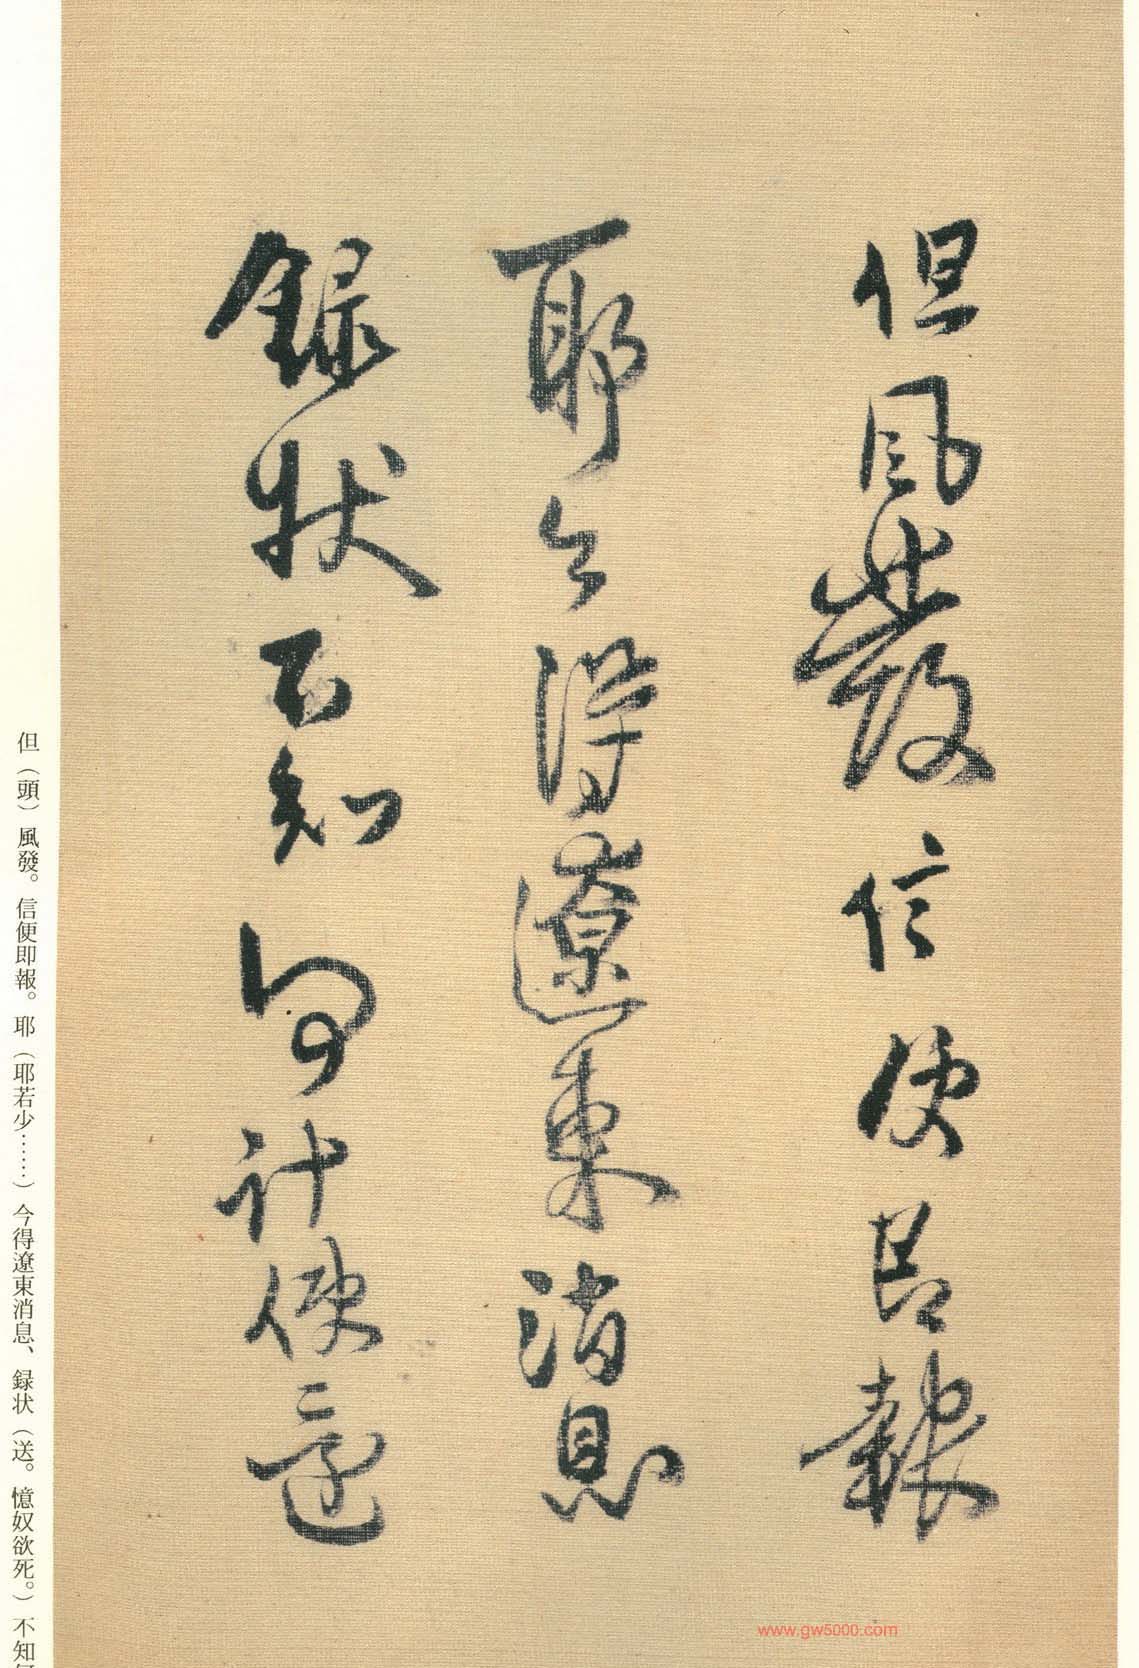 但風發信便即報
耶今得遼東消息
録状不知何計使還
但（頭）風發。信便即報。耶（耶若少……）今得遼東消息、録状（送。憶奴欲死。）不知
www.gw5000.com